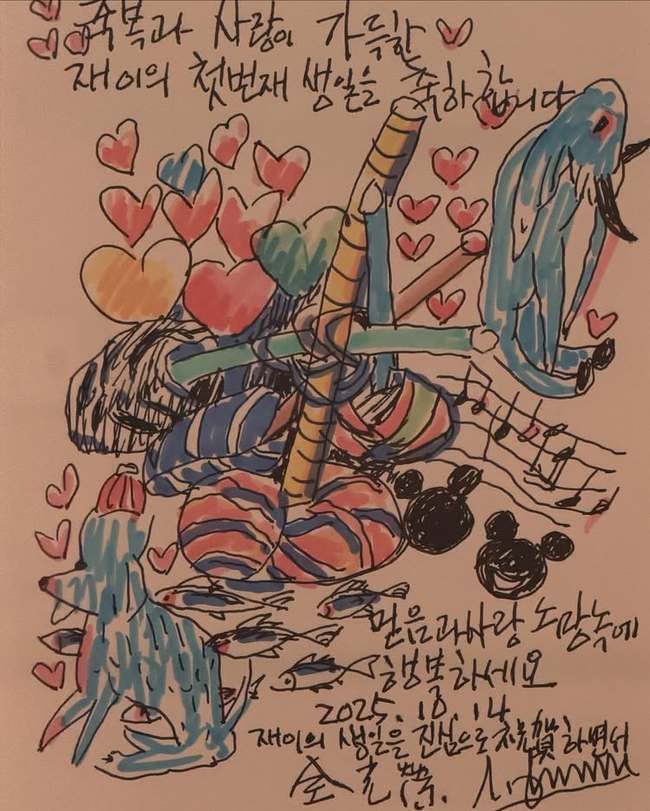 축복과 사랑이 가득한
재이의 첫번재 생일을 축하합니다
믿음과 사랑 노랑속에
행복하세요
2025. 10. 14
재이의 생일을 진심으로 祝賀하면서
金